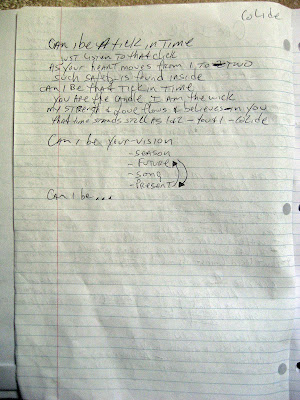 Collide
Can I be A tick in Time
just listen To that click
As your heart moves from 1 To two
such safety is found inside
Can I Be that Tick in Time
You Are the candle I am the wick
my strength & love flows & believes in you
that time stands still As 1 & 2 - You & I - Collide
Can I be your vision
- season
- Future
- song
- Present
Can I be...